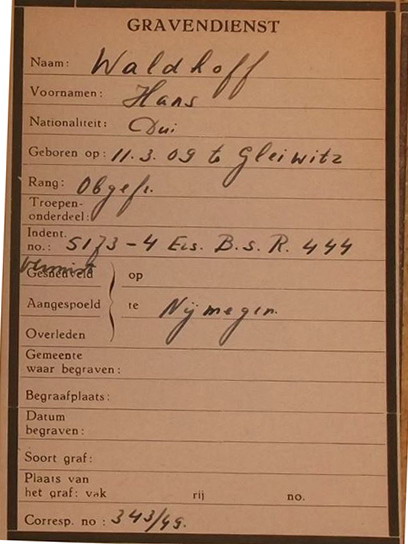 GRAVENDIENST
Naam: Waldhoff
Voornamen: Hans
Nationaliteit: Dui
Geboren op: 11.3.09 te Gleiwitz
Rang: Obgefr.
Troepen-
onderdeel:
Indent.
no.: 5173-4 Eis. B.s.R. 444
Vermist
Gesneuveld op
Aangespoeld te Nijmegen.
Overleden
Gemeente
waar begraven:
Begraafplaats:
Datum
begraven:
Soort graf:
Plaats van
het graf: vak rij no.
Corresp. no: 343/49.